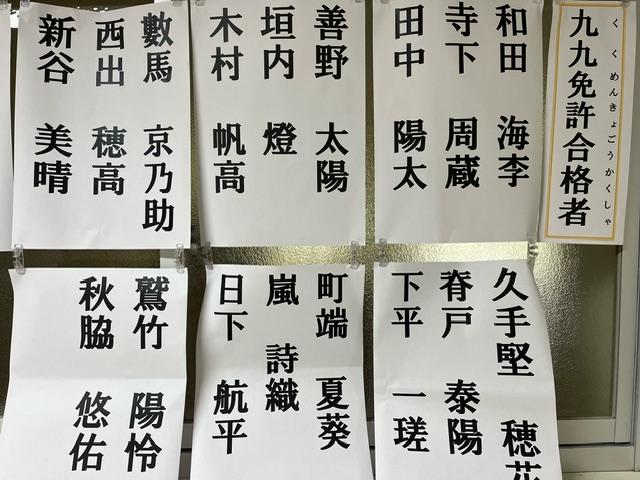 九九免許合格者
くくめんきょごうかくしゃ
和田 海李
寺下 周蔵
田中 陽太
善野 太陽
垣内 燈
木村 帆高
數馬 京乃助
西出 穂高
新谷 美晴
久手堅 穂花
脊戸 泰陽
下平 一瑳
町端 夏葵
嵐 詩織
日下 航平
鷲竹 陽怜
秋脇 悠佑